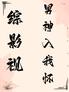 男神入我怀
综影视